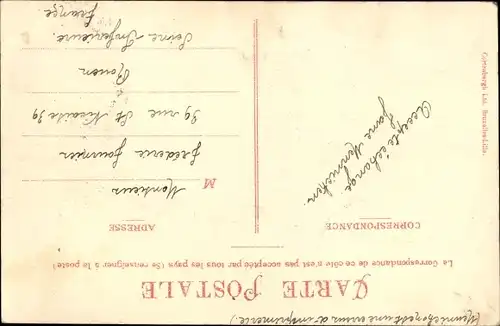 CARTE POSTALE
La Correspondance de ce côté n'est pas acceptée par tous les pays (Se renseigner à la poste)
CORRESPONDANCE
ADRESSE
Accepte échange
Jane Hennicken.
M
Monsieur
Frédéric Fournier
39 rue St Nicaise 39
Rouen
Seine Inférieure.
France.
Bruxelles-Lille.